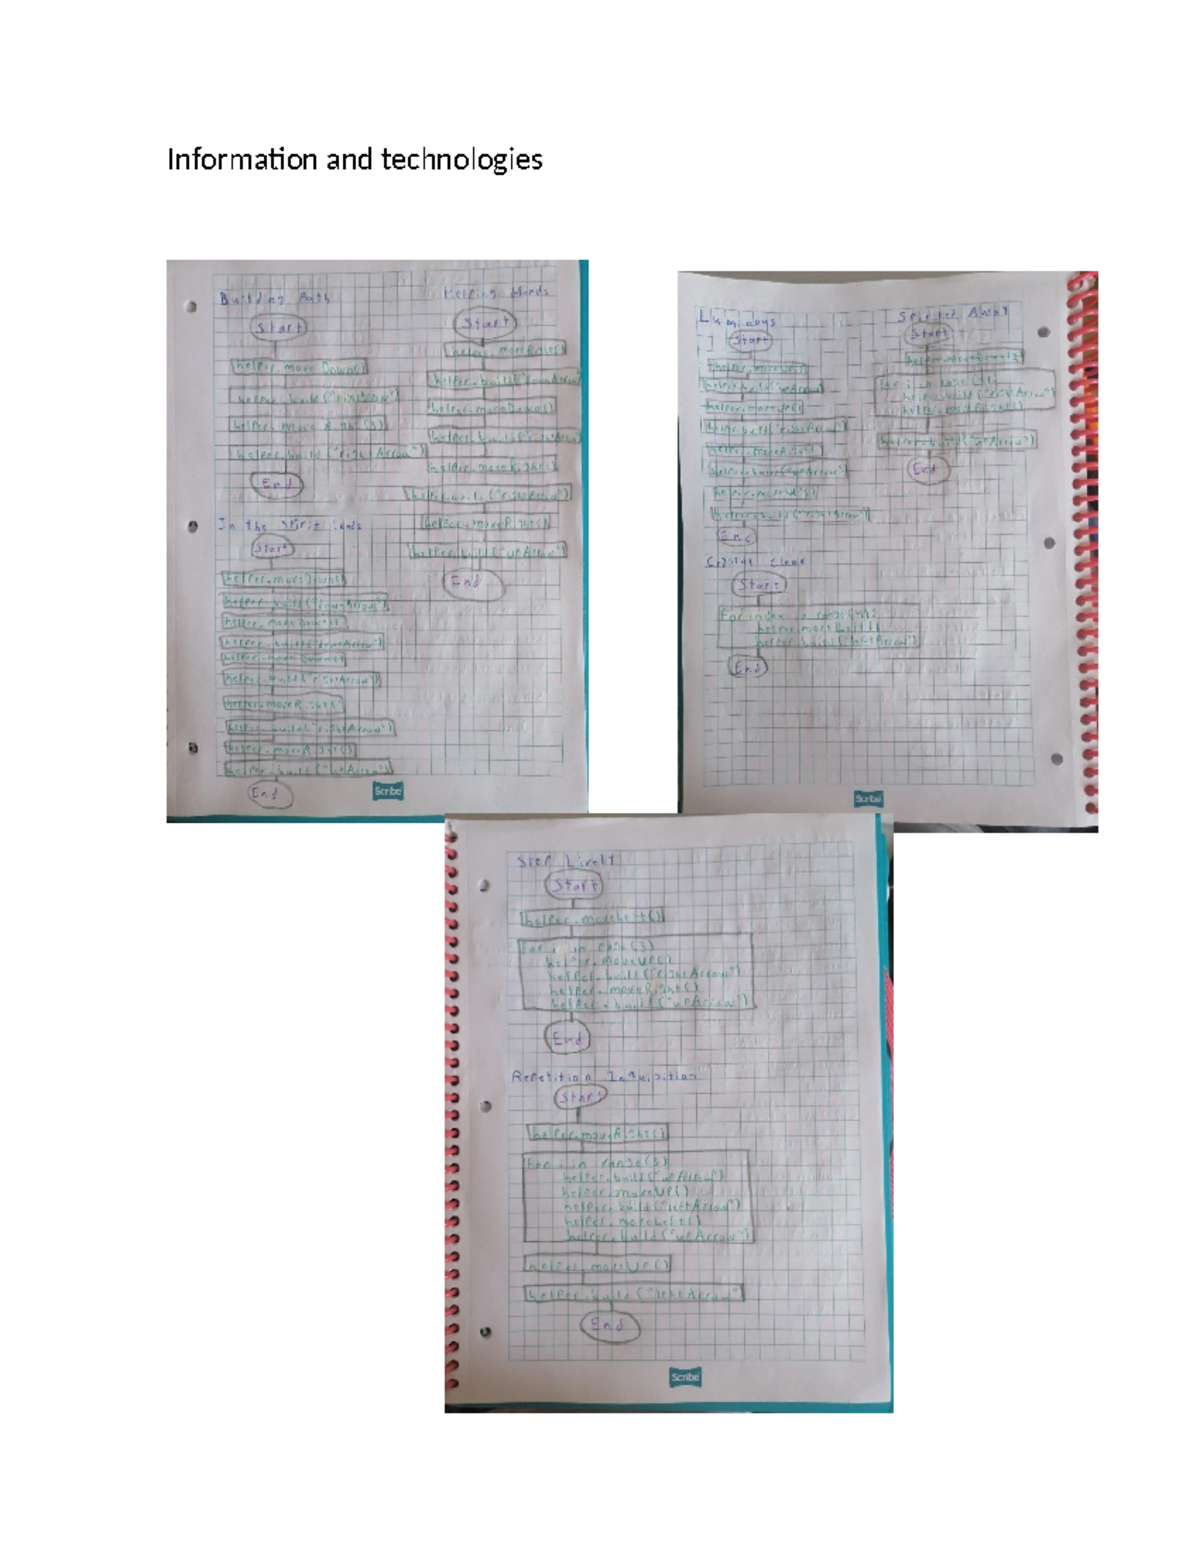 Information and technologies
Building Path
Start
helper.moveDown()
helper.build("rightArrow")
helper.moveRight(3)
helper.build("rightArrow")
End
In the Spirit Lands
Start
helper.moveDown()
helper.build("downArrow")
helper.moveDown()
helper.build("downArrow")
helper.moveDown()
helper.build("rightArrow")
helper.moveRight()
helper.build("rightArrow")
helper.moveRight()
helper.build(
End
Scribe
Helping Hands
Start
helper.moveRight()
helper.build("downArrow
helper.moveDown()
helper.build("rightArrow
helper.moveRight()
helper.build("rightArrow")
helper.moveRight()
helper.build("upArrow")
End
Luminous
Start
helper.moveUp()
helper.build("upArrow")
helper.moveUp()
helper.build("rightArrow")
helper.moveRight()
helper.build("upArrow")
helper.moveUp()
helper.build("rightArrow")
End
Crystal clear
Start
For index in range(4):
helper.moveLeft()
helper.build("leftArrow")
End
Spirited Away
Start
For i in range
helper.build("rightArrow")
helper.moveRight()
helper.build("upArrow")
End
Scribe
Step Lively
Start
helper.moveLeft()
For i in range(3)
helper.moveUP()
helper.build("rightArrow")
helper.moveRight()
helper.build("upArrow")
End
Repetition Inquisition
Start
helper.moveRight()
For i in range(3)
helper.build("upArrow")
helper.moveUP()
helper.build("leftArrow")
helper.moveLeft()
helper.build("upArrow")
helper.moveUP()
helper.build("leftArrow"
End
Scribe